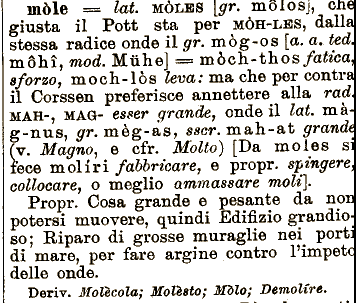 mòle = lat. MÒLES [gr. mõlos], che
giusta il Pott sta per MÒH-LES, dalla
stessa radice onde il gr. mòg-os [a. a. ted.
môhî, mod. Mühe] = mòch-thos fatica,
sforzo, moch-lòs leva: ma che per contra
il Corssen preferisce annettere alla rad.
MAH-, MAG- esser grande, onde il lat. mà-
g-nus, gr. mèg-as, sscr. mah-at grande
(v. Magno, e cfr. Molto) [Da moles si
fece molíri fabbricare, e propr. spingere,
collocare, o meglio ammassare moli].
Propr. Cosa grande e pesante da non
potersi muovere, quindi Edifizio grandio-
so; Riparo di grosse muraglie nei porti
di mare, per fare argine contro l'impeto
delle onde.
Deriv. Molècola; Molèsto; Mòlo; Demolíre.